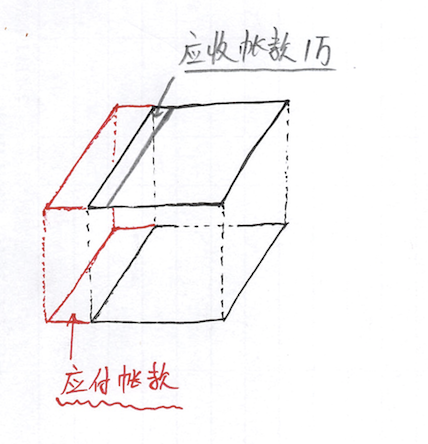 应收帐款1万
应付帐款